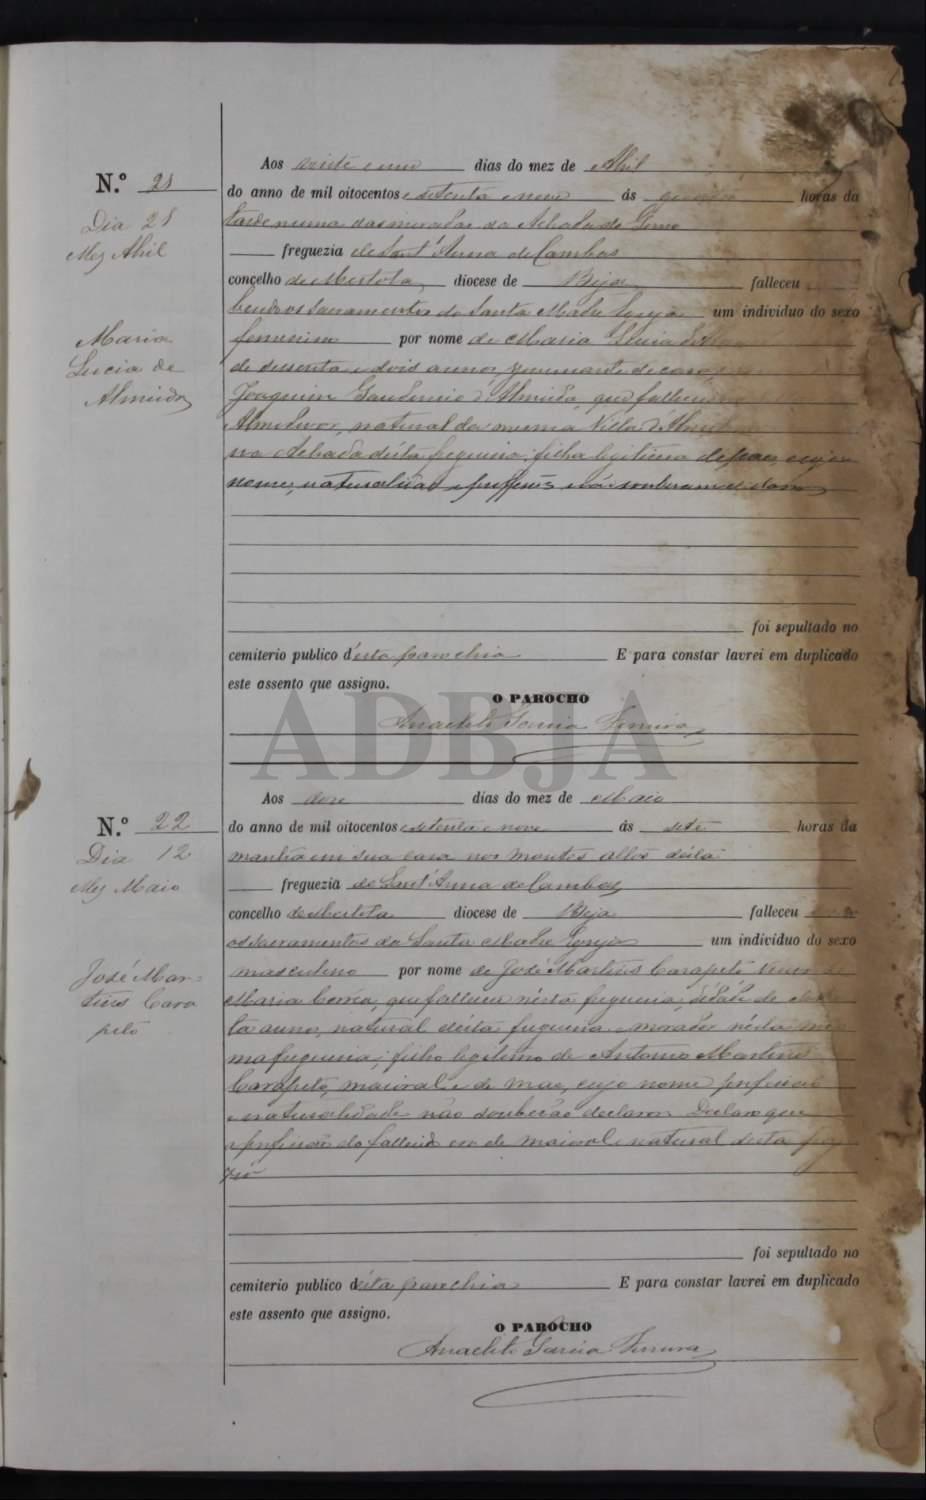 N.º 21
Dia 21
Mez Abril
Maria
Lucia de
Almeida
Aos vinte e um dias do mez de Abril
do anno de mil oitocentos e setenta e nove ás horas da
tarde n'uma das moradas da Achada do
freguezia de Sant'Anna de Cambas
concelho de Mertola diocese de Beja falleceu
os Sacramentos da Santa Madre Igreja um individuo do sexo
feminino por nome de Maria Lucia
de sessenta e dois annos,
Joaquim Gaudencio d'Almeida, que falleceu
natural da mesma Villa
na Achada d'esta freguezia, filha legitima de paes, cujos
nomes, naturalidade e profissões não souberam declarar
foi sepultado no
cemiterio publico d'esta parochia E para constar lavrei em duplicado
este assento que assigno.
O PAROCHO
Anacleto Garcia Ferreira
ADBJA
N.º 22
Dia 12
Mez Maio
José Mar-
tins Cara
peto
Aos doze dias do mez de Maio
do anno de mil oitocentos e setenta e nove ás sete horas da
manhã em sua casa nos montes altos d'esta
freguezia de Sant'Anna de Cambas
concelho de Mertola diocese de Beja falleceu
os Sacramentos da Santa Madre Igreja um individuo do sexo
masculino por nome de José Martins Carapeto
Maria Correa, que falleceu n'esta freguezia, idade de
ta annos, natural d'esta freguezia morador n'esta mes
ma freguezia; filho legitimo de Antonio Martins
Carapeto, maioral e de mãe, cujo nome profissão
e naturalidade não souberão declarar. Declaro que
a profissão do fallecido era de maioral e natural d'esta
foi sepultado no
cemiterio publico d'esta parochia E para constar lavrei em duplicado
este assento que assigno.
O PAROCHO
Anacleto Garcia Ferreira